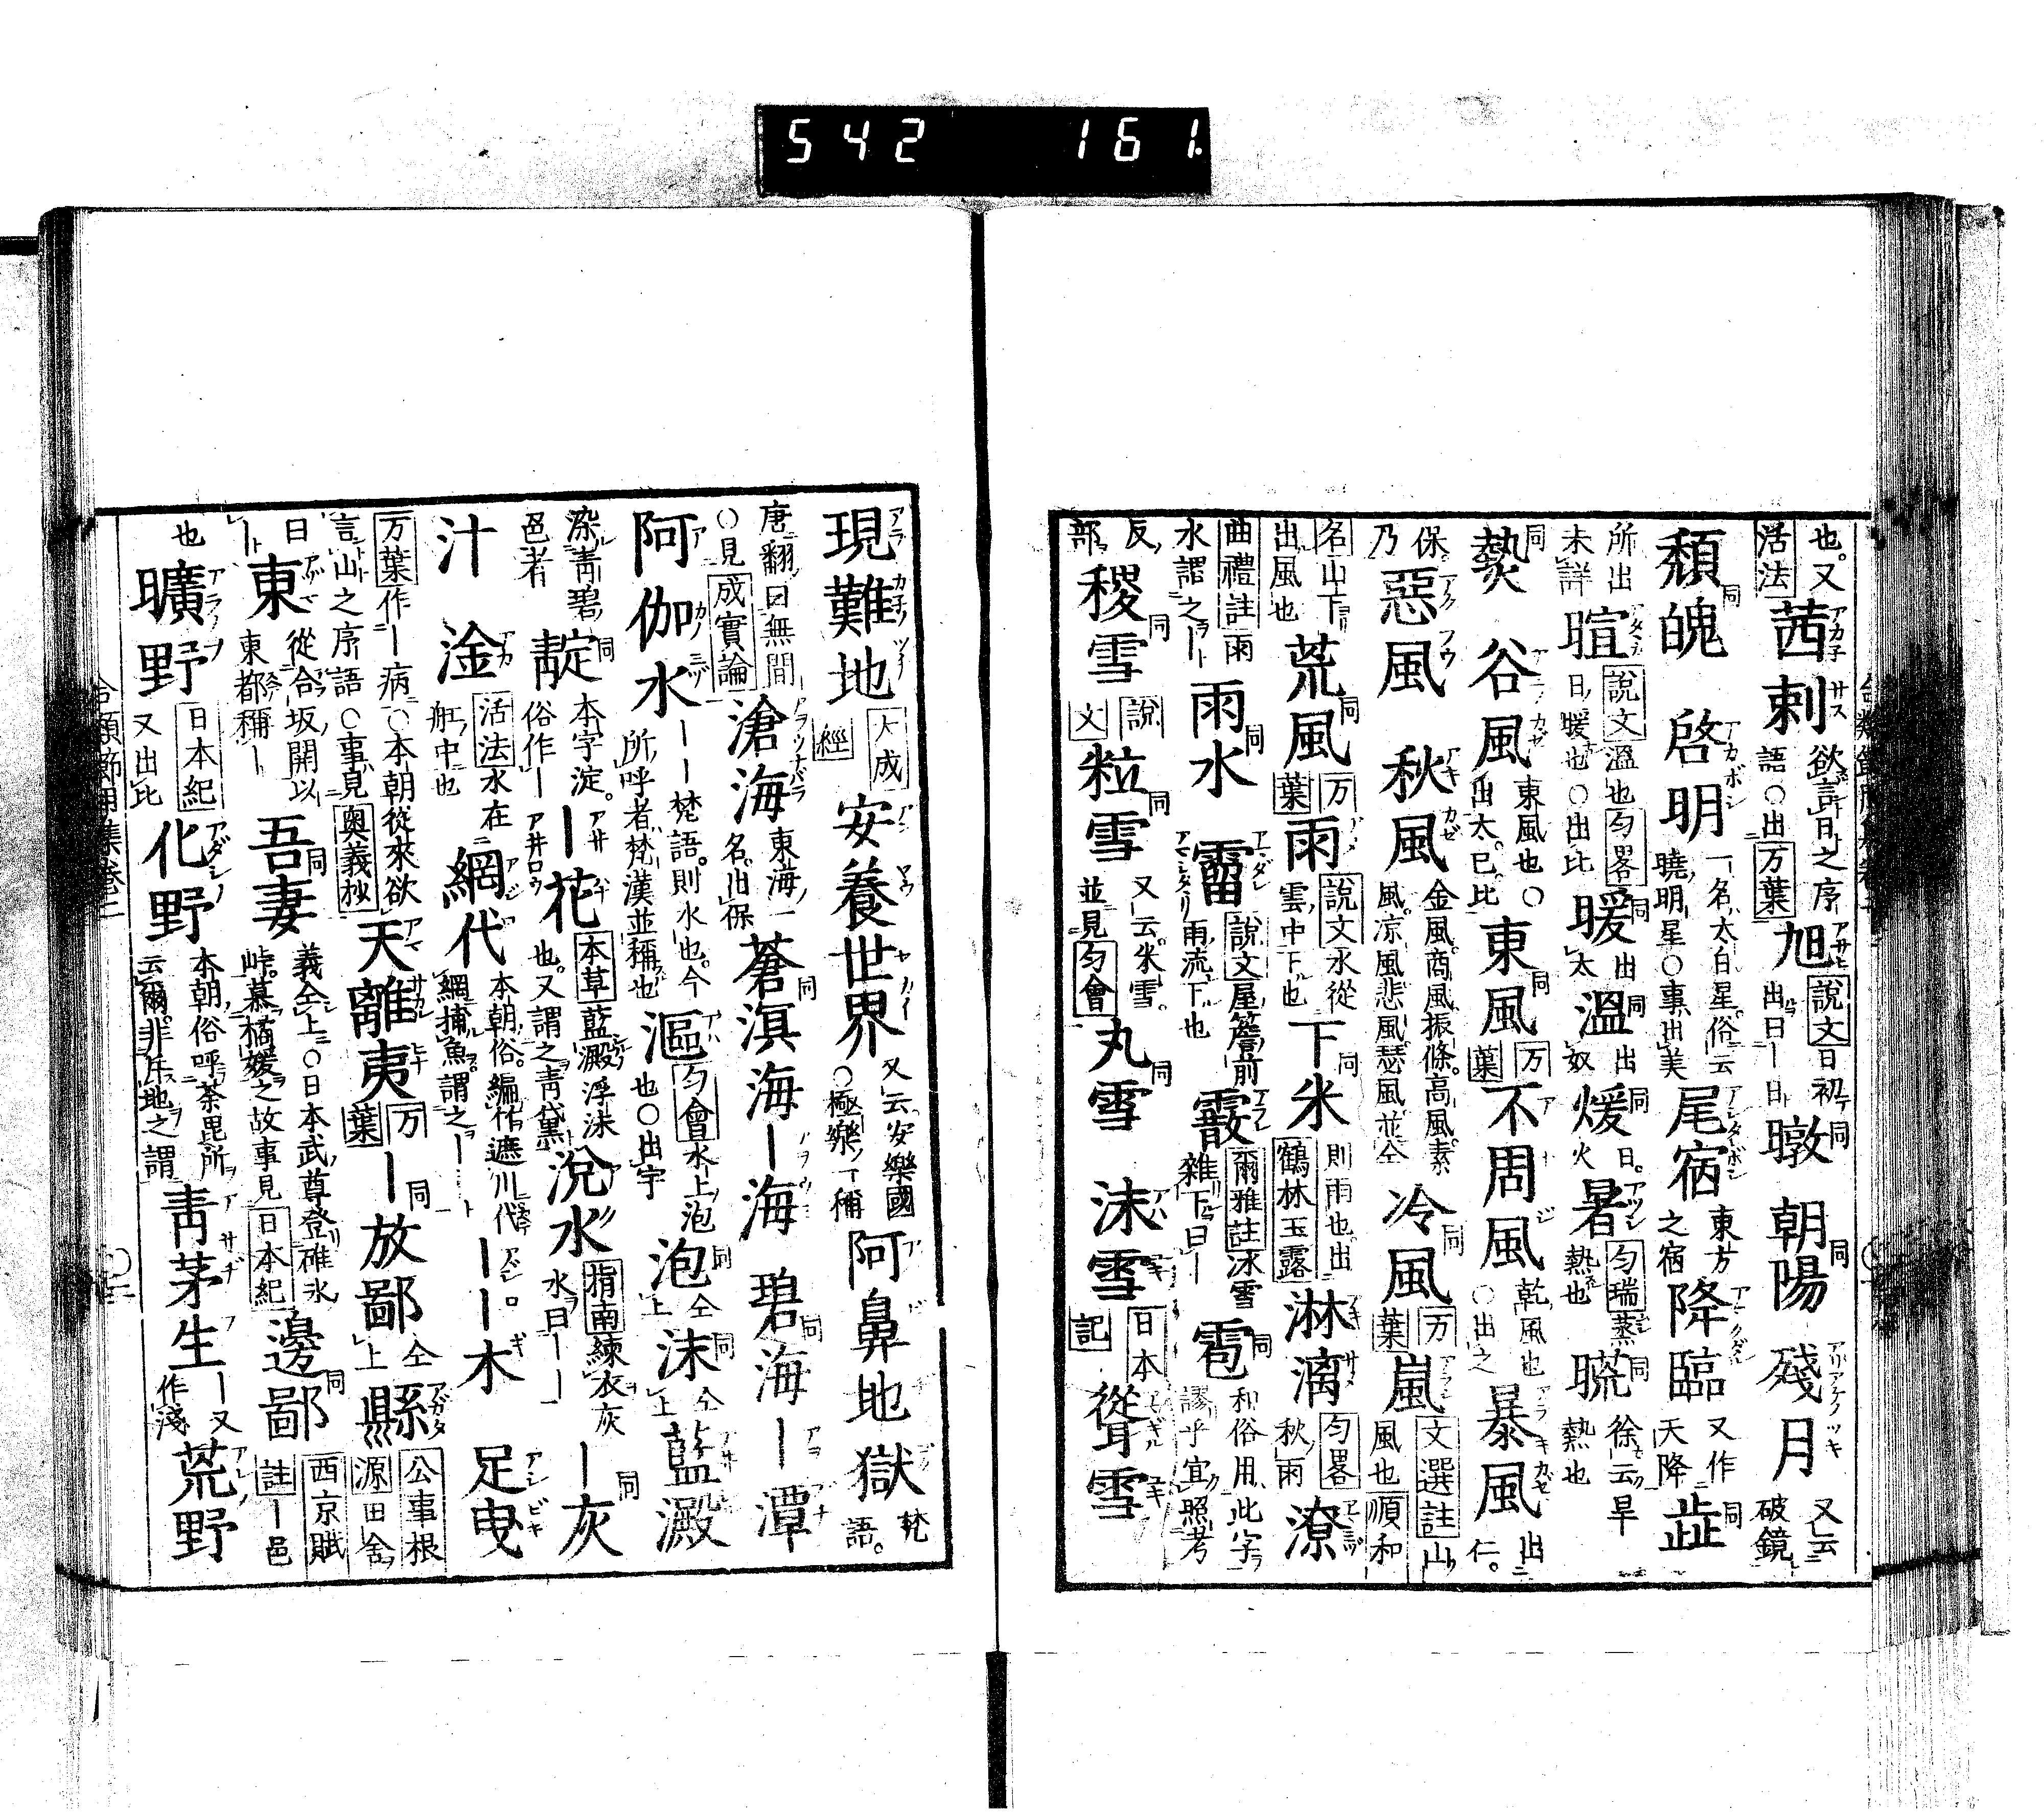 542 161.
也又活法茜刺欲言日之序語○出万葉旭說文日初出曰ー日暾同朝陽同殘月又云破鏡
頽魄同啓明一名太白星俗云曉明星○事出美尾宿東方之宿降臨又作天降䟱同
所出未詳暄說文溫也匀畧日暖也○出比暖同出太溫同出奴煖同火日暑匀瑞蒸熱也同徐云旱熱也
同谷風東風也○出太已比東風同万葉不周風乾風也○出之暴風出仁
保乃惡風秋風金風商風振條高風素風凉風悲風瑟風並仝冷風同万葉嵐文選註山風也順和
名山下出風也荒風同万葉雨說文水從雲中下也下米同鶴林玉露則雨也出淋漓匀畧秋雨潦
曲禮註雨水謂之ー雨水同霤說文屋簷前雨流下也霰爾雅註冰雪雜下曰ー雹同和俗用此字謬乎宜照考
反部稷雪同說文粒雪同又云米雪並見匀會丸雪同沫雪日本記聳雪
現難地大成經安養世界又云安樂國○極樂ノ一稱阿鼻地獄梵語
唐翻曰無間○見成實論滄海東海一名出保蒼溟海同ー海碧海同ー潭
阿伽水ーー梵語則水也今所呼者梵漢並稱也漚匀會水上泡也○出宇泡同仝上沫同仝上藍澱
染靑碧色者靛同本字淀俗作ーー花本草藍澱浮沫也又謂之靑黛涗水指南練衣灰水曰ーーー灰同
汁淦活法水在舡中也網代本朝俗編竹遮川代網捕魚謂之ーーーー木足曳
万葉作ー病○本朝從來欲言山之序語○事見奧義抄天離夷万葉ー放鄙仝上縣公事根源田舍
曰ー東從合坂關以東都稱ー吾妻同義仝上○日本武尊登碓氷峠慕橘媛之故事見日本紀邊鄙同西京賦註ー邑
也曠野日本紀又出比化野本朝俗呼荼毘所云爾非斥地之謂靑茅生ー又作淺荒野